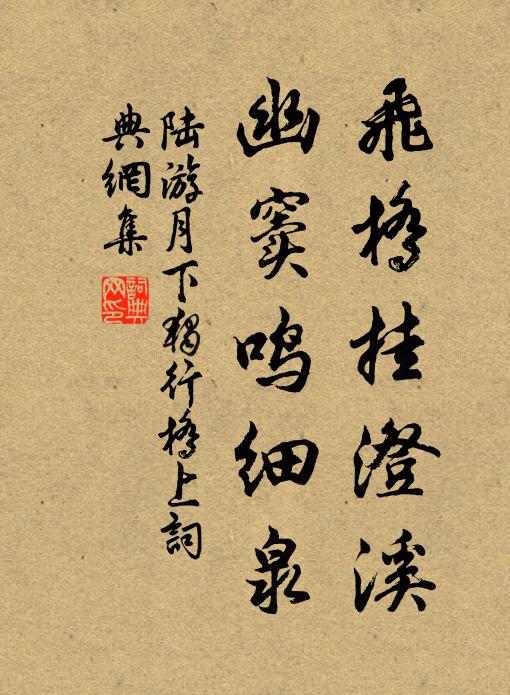 飛橋挂澄溪
幽竇鸣細泉
陆游月下独行橋上詞
典網集
詞典
网印